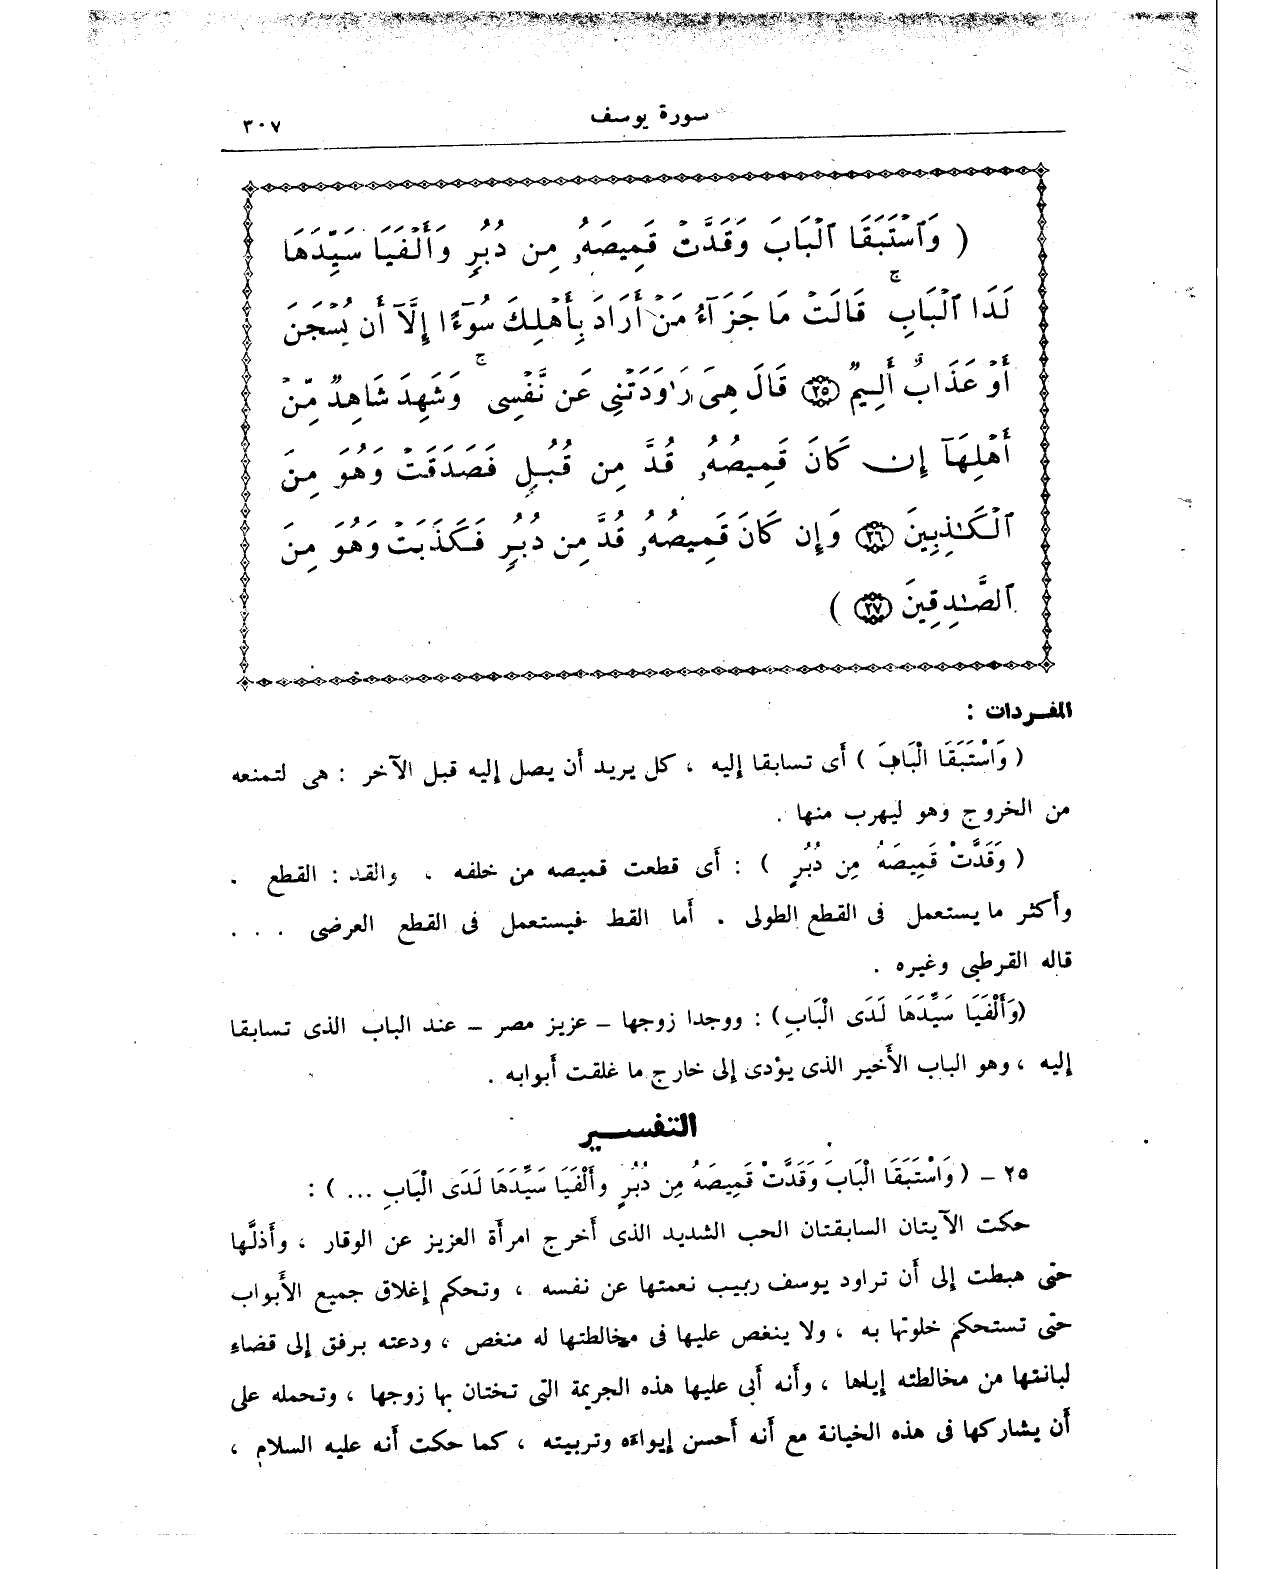 سورة يوسف
٣٠٧
( وَٱسْتَبَقَا ٱلْبَابَ وَقَدَّتْ قَمِيصَهُۥ مِن دُبُرٍ وَأَلْفَيَا سَيِّدَهَا
لَدَا ٱلْبَابِ ۚ قَالَتْ مَا جَزَآءُ مَنْ أَرَادَ بِأَهْلِكَ سُوٓءًا إِلَّآ أَن يُسْجَنَ
أَوْ عَذَابٌ أَلِيمٌ ٢٥ قَالَ هِىَ رَٰوَدَتْنِى عَن نَّفْسِى ۚ وَشَهِدَ شَاهِدٌ مِّنْ
أَهْلِهَآ إِن كَانَ قَمِيصُهُۥ قُدَّ مِن قُبُلٍ فَصَدَقَتْ وَهُوَ مِنَ
ٱلْكَٰذِبِينَ ٢٦ وَإِن كَانَ قَمِيصُهُۥ قُدَّ مِن دُبُرٍ فَكَذَبَتْ وَهُوَ مِنَ
ٱلصَّٰدِقِينَ ٢٧ )
المفـردات :
( وَاسْتَبَقَا الْبَابَ ) أى تسابقا إليه ، كل يريد أن يصل إليه قبل الآخر : هى لتمنعه
من الخروج وهو ليهرب منها .
( وَقَدَّتْ قَمِيصَهُ مِن دُبُرٍ ) : أى قطعت قميصه من خلفه ، والقد : القطع .
وأكثر ما يستعمل فى القطع الطولى . أما القط فيستعمل فى القطع العرضى . . .
قاله القرطبى وغيره .
(وَأَلْفَيَا سَيِّدَهَا لَدَى الْبَابِ) : ووجدا زوجها – عزيز مصر – عند الباب الذى تسابقا
إليه ، وهو الباب الأخير الذى يؤدى إلى خارج ما غلقت أبوابه .
التفسـير
٢٥ – ( وَاسْتَبَقَا الْبَابَ وَقَدَّتْ قَمِيصَهُ مِن دُبُرٍ وأَلْفَيَا سَيِّدَهَا لَدَى الْبَابِ ... ) :
حكت الآيتان السابقتان الحب الشديد الذى أخرج امرأة العزيز عن الوقار ، وأذلَّها
حتى هبطت إلى أن تراود يوسف ربيب نعمتها عن نفسه ، وتحكم إغلاق جميع الأبواب
حتى تستحكم خلوتها به ، ولا ينغص عليها فى مخالطتها له منغص ، ودعته برفق إلى قضاء
لبانتها من مخالطته إياها ، وأنه أبى عليها هذه الجريمة التى تختان بها زوجها ، وتحمله على
أن يشاركها فى هذه الخيانة مع أنه أحسن إيواءه وتربيته ، كما حكت أنه عليه السلام ،